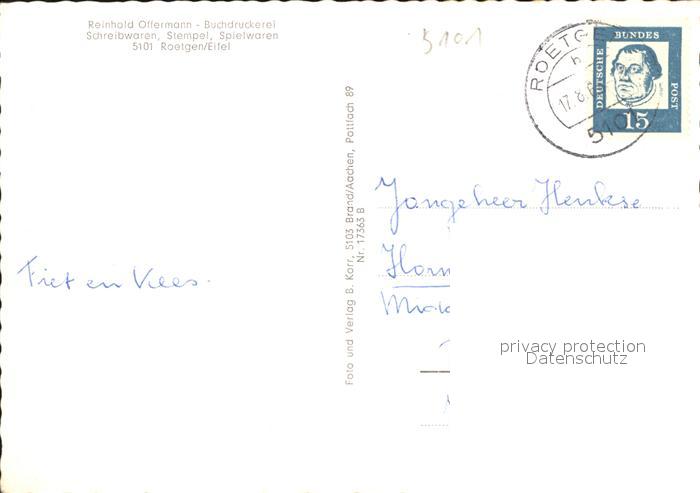 Reinhold Offermann - Buchdruckerei
Schreibwaren, Stempel, Spielwaren
5101 Roetgen/Eifel
5101
ROETGE
17.8.
510
DEUTSCHE BUNDES POST
15
Foto und Verlag B. Korr, 5103 Brand/Aachen, Postfach 89
Nr. 17363 B
Jongeheer
Fiet en Vees.
privacy protection
Datenschutz